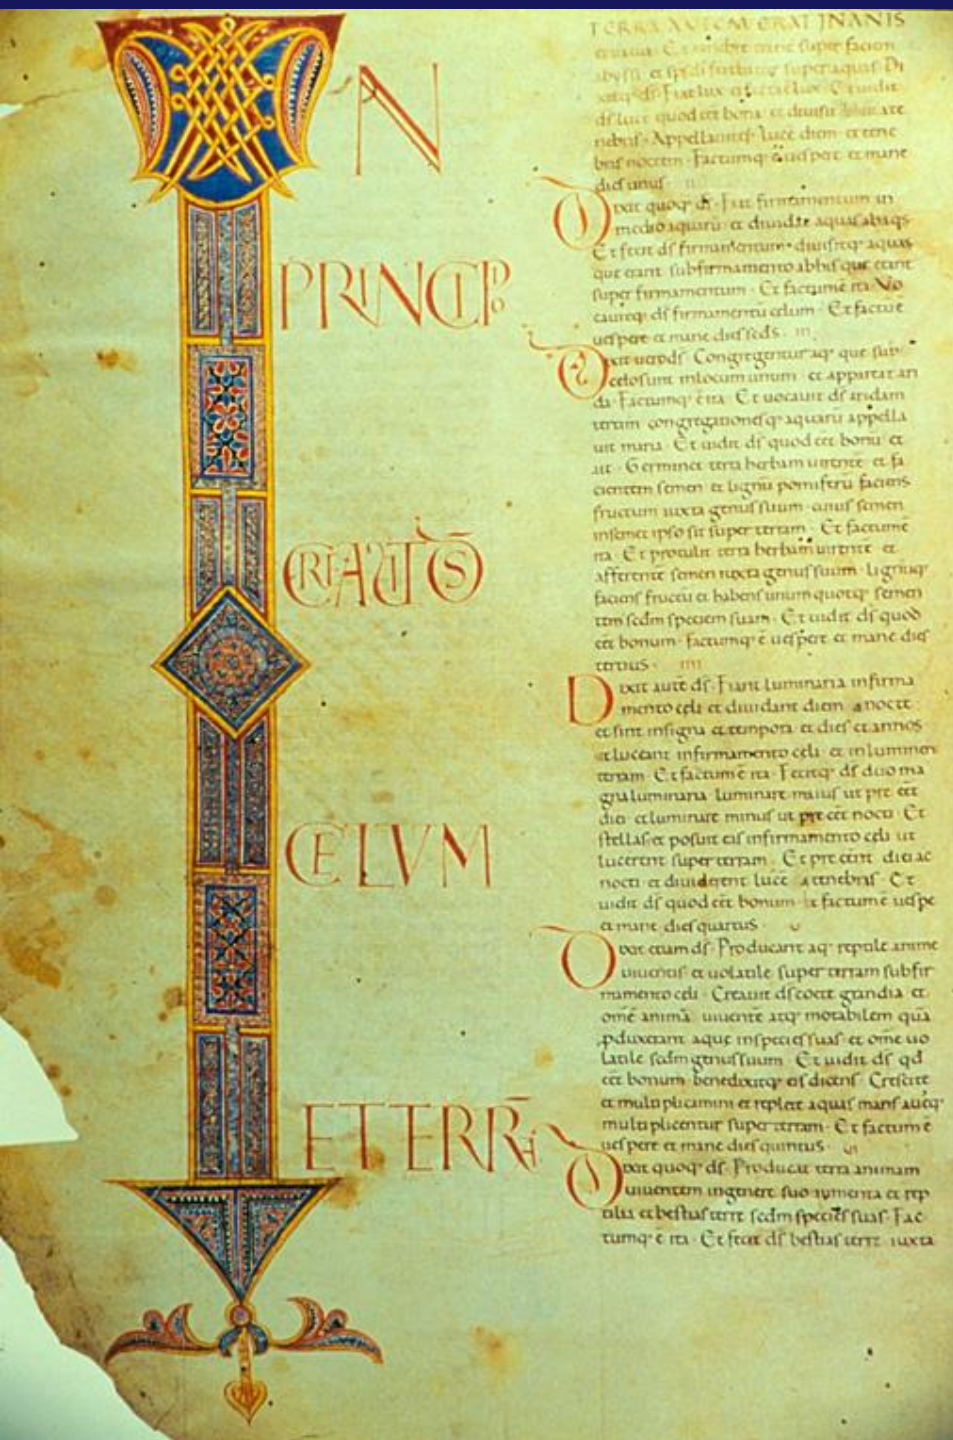 IN
PRINCIPIO
CREAVIT DS
CELVM
ET TERRA
TERRA AUTEM ERAT INANIS
et uacua · Et tenebre erant super faciem
abyssi et sps di ferebatur super aquas · Di
xitq· ds · Fiat lux et facta e lux · Et uidit
ds luce quod eet bona · et diuisit luce a te
nebris · Appellauitq· luce diem · et tene
bras noctem · Factumq· e uespere et mane
dies unus
Dixit quoq· ds · Fiat firmamentum in
medio aquaru · et diuidat aquas ab aqs
Et fecit ds firmamentum · diuisitq· aquas
que erant sub firmamento ab his que erant
super firmamentum · Et factum e ita Vo
cauitq· ds firmamentu celum · Et factu e
uespere et mane dies scds · III
Dixit uero ds · Congregentur aq· que sub
celo sunt in locum unum · et appareat ari
da · Factumq· e ita · Et uocauit ds aridam
terram congregationesq· aquaru appella
uit maria · Et uidit ds quod eet bonu et
ait · Germinet terra herbam uirente et fa
cientem semen et lignu pomiferu faciens
fructum iuxta genus suum · cuius semen
in semet ipso sit super terram · Et factum e
ita · Et protulit terra herbam uirente et
afferente semen iuxta genus suum · lignuq·
faciens fructu et habens unum quotq· semen
tem scdm speciem suam · Et uidit ds quod
eet bonum · factumq· e uespere et mane dies
tertius · IIII
Dixit aute ds · Fiant luminaria in firma
mento celi et diuidant diem a nocte
et sint in signa et tempora et dies et annos
et luceant in firmamento celi et inluminent
terram · Et factum e ita · Fecitq· ds duo ma
gna luminaria luminare maius ut pre eet
diei et luminare minus ut pre eet nocti · Et
stellas et posuit eas in firmamento celi ut
lucerent super terram · Et pre eent diei ac
nocti et diuiderent luce a tenebras · Et
uidit ds quod eet bonum · et factum e uespe
et mane dies quartus · U
Dixit etiam ds · Producant aq· reptile anime
uiuentis et uolatile super terram sub fir
mamento celi · Creauit ds coete grandia et
ome anima uiuente atq· motabilem qua
pduxerant aque in species suas · et ome uo
latile scdm genus suum · Et uidit ds qd
eet bonum benedixitq· eis dicens · Crescite
et multiplicamini et replete aquas maris aueq·
multiplicentur super terram · Et factum e
uespere et mane dies quintus · UI
Dixit quoq· ds · Producat terra animam
uiuentem in genere suo iumenta et rep
tilia et bestias terre scdm species suas · Fac
tumq· e ita · Et fecit ds bestias terre iuxta